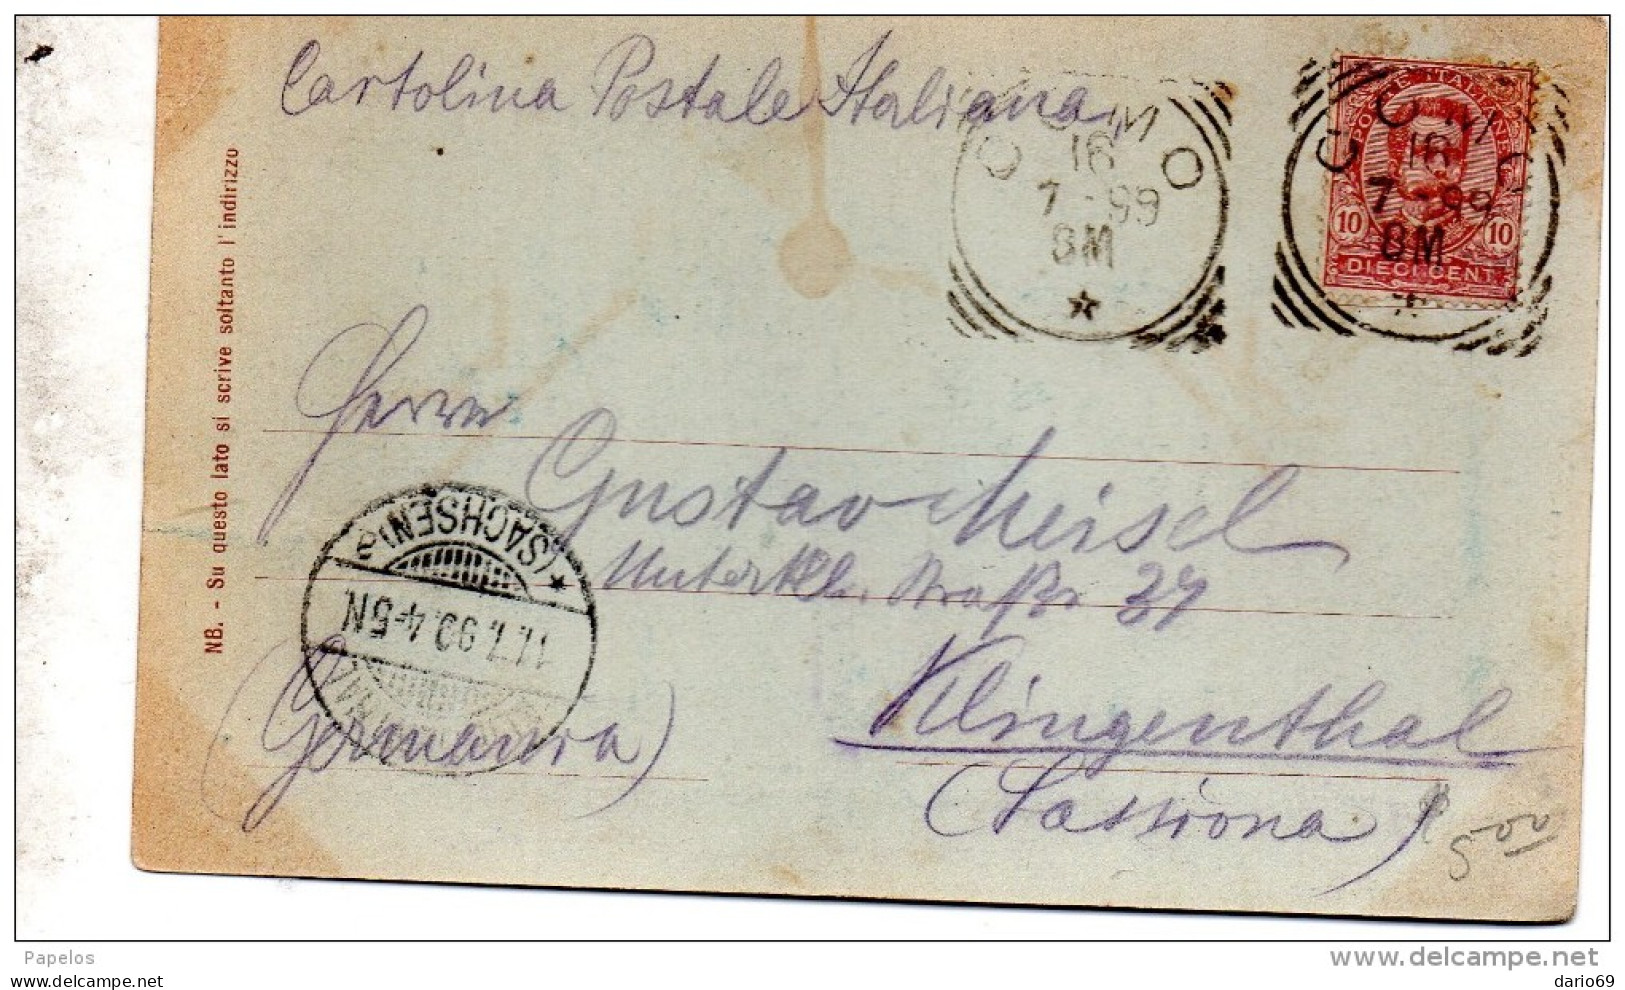 Cartolina Postale Italiana,
COMO
16
7-99
8M
COMO
16
7-99
8M
POSTE ITALIANE
10 10
DIECI CENT
NB. - Su questo lato si scrive soltanto l'indirizzo
Herrn
Gustav Meisel
Straße 37
Klingenthal
(Sassiona)
(Germania)
(SACHSEN) a
4-5N
500
Papelos
www.delcampe.net
dario69